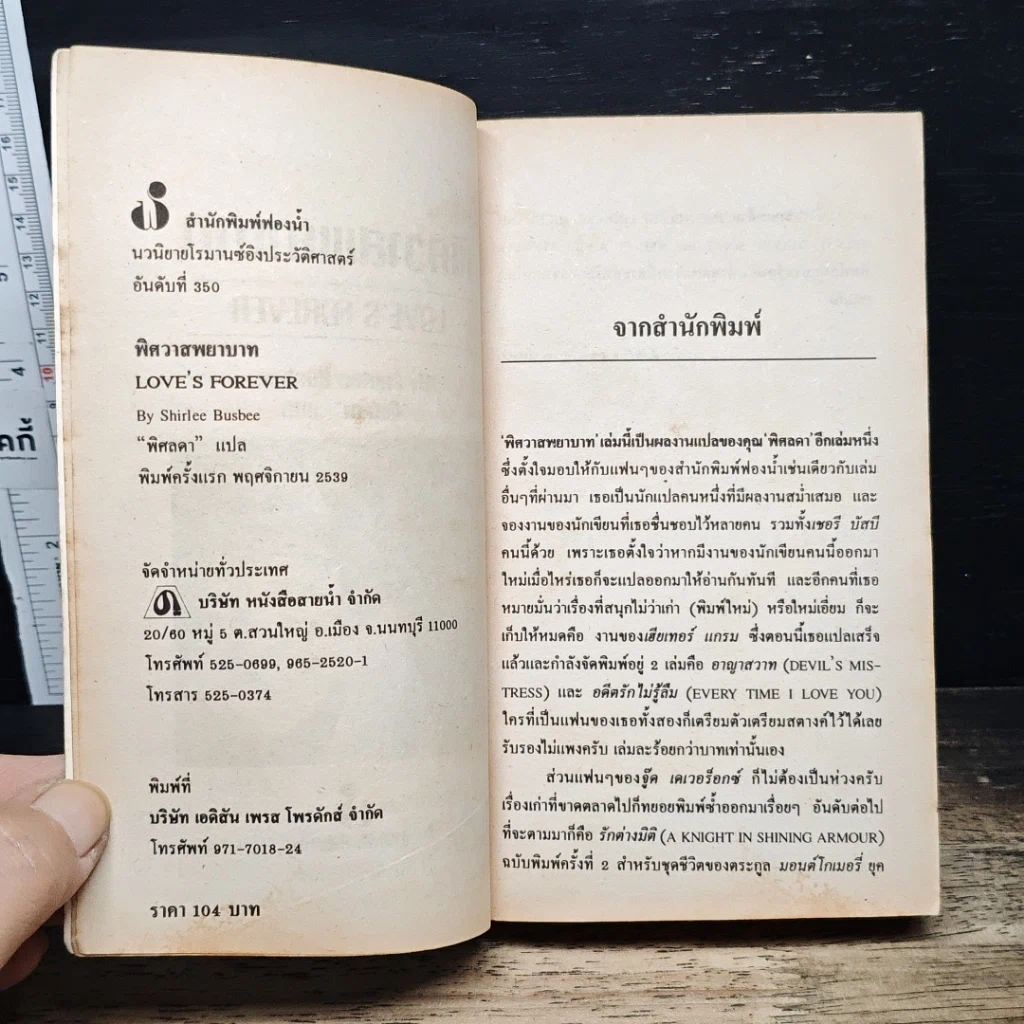 สำนักพิมพ์ฟองน้ำ
นวนิยายโรมานซ์อิงประวัติศาสตร์
อันดับที่ 350
พิศวาสพยาบาท
LOVE'S FOREVER
By Shirlee Busbee
“พิศลดา” แปล
พิมพ์ครั้งแรก พฤศจิกายน 2539
จัดจำหน่ายทั่วประเทศ
บริษัท หนังสือสายน้ำ จำกัด
20/60 หมู่ 5 ต.สวนใหญ่ อ.เมือง จ.นนทบุรี 11000
โทรศัพท์ 525-0699, 965-2520-1
โทรสาร 525-0374
พิมพ์ที่
บริษัท เอดิสัน เพรส โพรดักส์ จำกัด
โทรศัพท์ 971-7018-24
ราคา 104 บาท
จากสำนักพิมพ์
'พิศวาสพยาบาท' เล่มนี้เป็นผลงานแปลของคุณ 'พิศลดา' อีกเล่มหนึ่ง
ซึ่งตั้งใจมอบให้กับแฟนๆของสำนักพิมพ์ฟองน้ำเช่นเดียวกับเล่ม
อื่นๆที่ผ่านมา เธอเป็นนักแปลคนหนึ่งที่มีผลงานสม่ำเสมอ และ
จองงานของนักเขียนที่เธอชื่นชอบไว้หลายคน รวมทั้งเชอรี บัสบี
คนนี้ด้วย เพราะเธอตั้งใจว่าหากมีงานของนักเขียนคนนี้ออกมา
ใหม่เมื่อไหร่เธอก็จะแปลออกมาให้อ่านกันทันที และอีกคนที่เธอ
หมายมั่นว่าเรื่องที่สนุกไม่ว่าเก่า (พิมพ์ใหม่) หรือใหม่เอี่ยม ก็จะ
เก็บให้หมดคือ งานของเฮียเทอร์ แกรม ซึ่งตอนนี้เธอแปลเสร็จ
แล้วและกำลังจัดพิมพ์อยู่ 2 เล่มคือ อาญาสวาท (DEVIL'S MIS-
TRESS) และ อดีตรักไม่รู้ลืม (EVERY TIME I LOVE YOU)
ใครที่เป็นแฟนของเธอทั้งสองก็เตรียมตัวเตรียมสตางค์ไว้ได้เลย
รับรองไม่แพงครับ เล่มละร้อยกว่าบาทเท่านั้นเอง
ส่วนแฟนๆของจู๊ด เดเวอร็อกซ์ ก็ไม่ต้องเป็นห่วงครับ
เรื่องเก่าที่ขาดตลาดไปก็ทยอยพิมพ์ซ้ำออกมาเรื่อยๆ อันดับต่อไป
ที่จะตามมาก็คือ รักต่างมิติ (A KNIGHT IN SHINING ARMOUR)
ฉบับพิมพ์ครั้งที่ 2 สำหรับชุดชีวิตของตระกูล มอนต์โกเมอรี่ ยุค